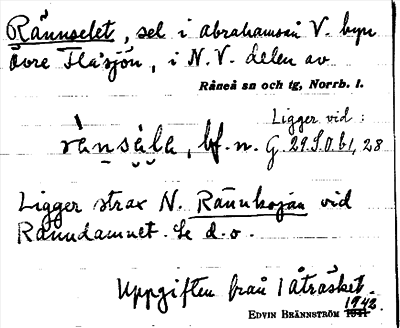 Rännselet, sel i Abrahamsån V. byn
Övre Flåsjön, i N.V. delen av
Råneå sn och tg, Norrb. l.
Ligger vid:
rànsèla, bf. n. G. 29.S.O.b1,28
Ligger strax N. Rännkojan vid
Ränndamnet. Se d.o.
Uppgiften från Iåträsket.
1942.
EDVIN BRÄNNSTRÖM 1941